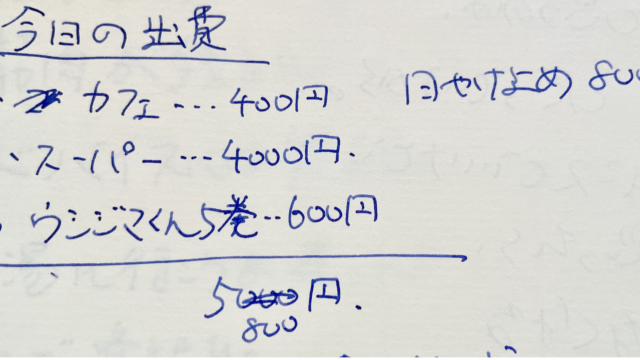 今日の出費
・カフェ…400円
・スーパー…4000円.
・ウシジマくん5巻‥600円
5800円.
日やけどめ 800